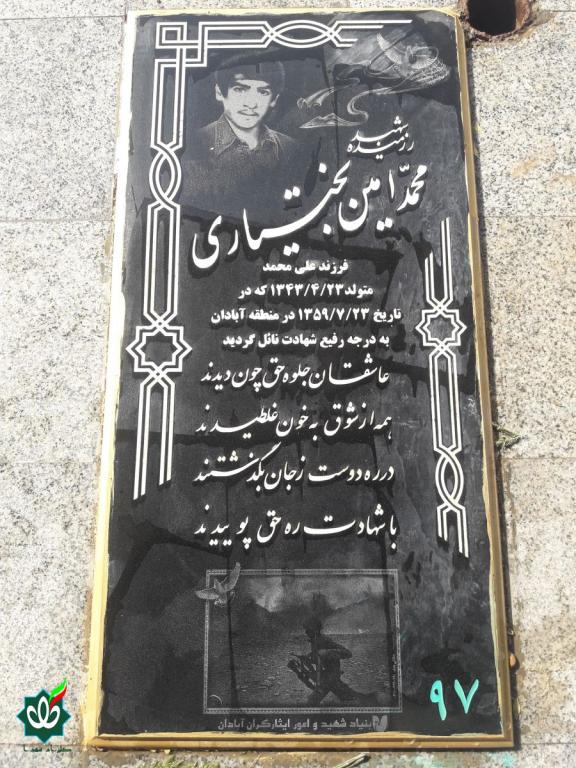 شهید
رزمنده
محمد امین بختیاری
فرزند علی محمد
متولد ۱۳۴۳/۴/۲۳ که در
تاریخ ۱۳۵۹/۷/۲۳ در منطقه آبادان
به درجه رفیع شهادت نائل گردید
عاشقان جلوه حق چون دیدند
همه از شوق به خون غلطیدند
در ره دوست ز جان بگذشتند
با شهادت ره حق پوییدند
بنیاد شهید و امور ایثارگران آبادان
۹۷